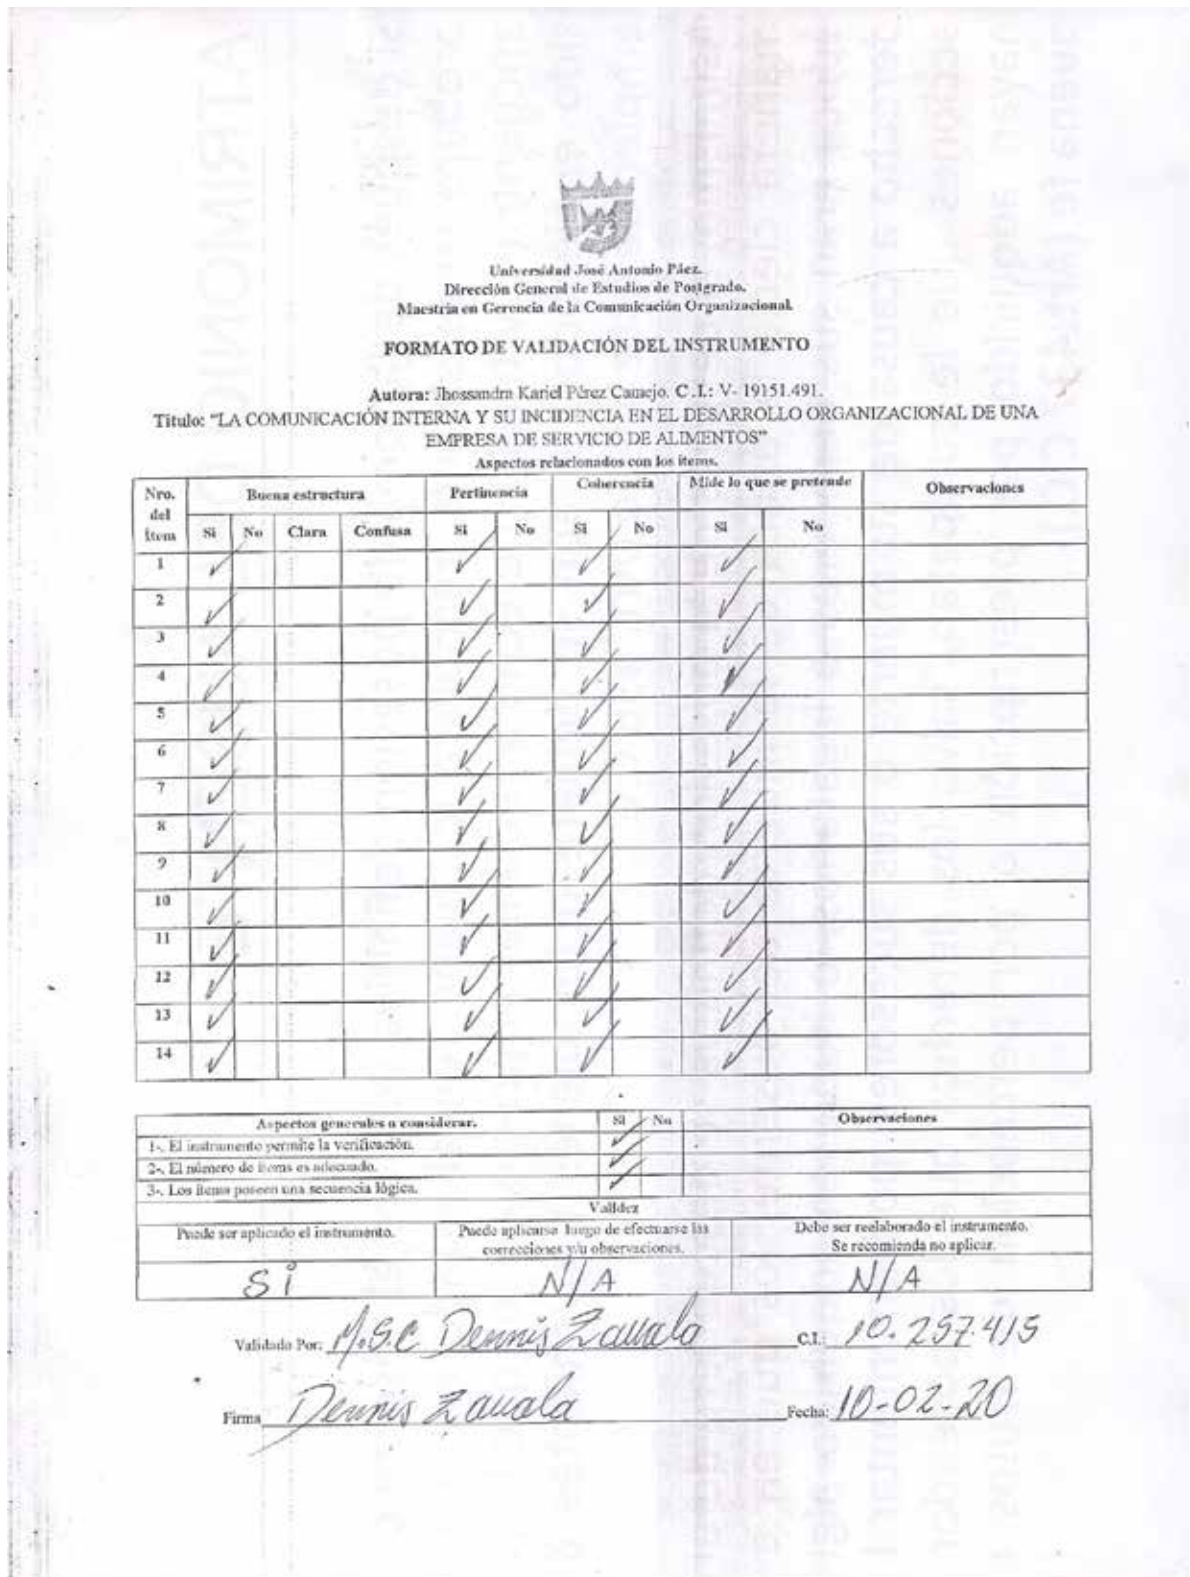 Universidad José Antonio Páez.
Dirección General de Estudios de Postgrado.
Maestria en Gerencia de la Comunicación Organizacional.
FORMATO DE VALIDACIÓN DEL INSTRUMENTO
Autora: Jhossandra Kariel Pérez Camejo. C.I.: V- 19151.491.
Titulo: "LA COMUNICACIÓN INTERNA Y SU INCIDENCIA EN EL DESARROLLO ORGANIZACIONAL DE UNA
EMPRESA DE SERVICIO DE ALIMENTOS"
Aspectos relacionados con los items.
Nro. del Item Buena estructura Pertinencia Coherencia Mide lo que se pretende Observaciones
Si No Clara Confusa Si No Si No Si No
1 ✓ ✓ ✓ ✓
2 ✓ ✓ ✓ ✓
3 ✓ ✓ ✓ ✓
4 ✓ ✓ ✓ ✓
5 ✓ ✓ ✓ ✓
6 ✓ ✓ ✓ ✓
7 ✓ ✓ ✓ ✓
8 ✓ ✓ ✓ ✓
9 ✓ ✓ ✓ ✓
10 ✓ ✓ ✓ ✓
11 ✓ ✓ ✓ ✓
12 ✓ ✓ ✓ ✓
13 ✓ ✓ ✓ ✓
14 ✓ ✓ ✓ ✓
Aspectos generales a considerar. Si No Observaciones
1-. El instrumento permite la verificación. ✓
2-. El número de items es adecuado. ✓
3-. Los items poseen una secuencia lógica. ✓
Validez
Puede ser aplicado el instrumento. Puede aplicarse luego de efectuarse las correcciones y/u observaciones. Debe ser reelaborado el instrumento. Se recomienda no aplicar.
Si N/A N/A
Validado Por: M.S.C Dennis Zavala C.I.: 10.257.415
Firma Dennis Zavala Fecha: 10-02-20